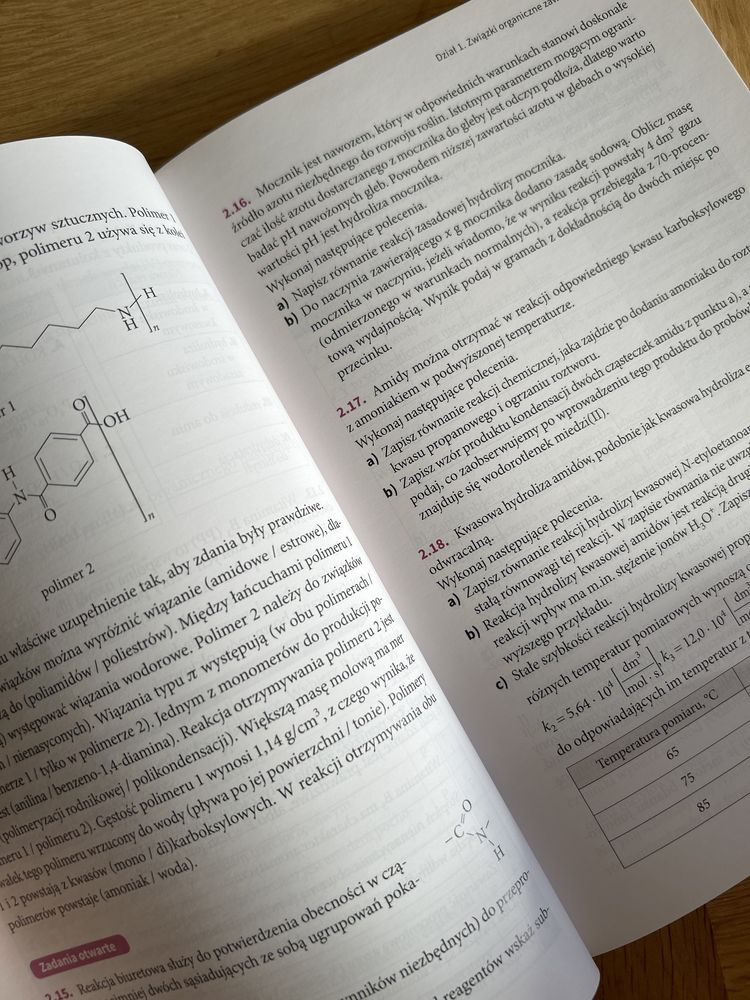 worzyw sztucznych. Polimer 1
op, polimeru 2 używa się z kolei
N
H
H
n
r 1
O
OH
H
N
O
n
polimer 2
u właściwe uzupełnienie tak, aby zdania były prawdziwe.
wiązków można wyróżnić wiązanie (amidowe / estrowe), dla-
żą do (poliamidów / poliestrów). Między łańcuchami polimeru 1
) występować wiązania wodorowe. Polimer 2 należy do związków
h / nienasyconych). Wiązania typu π występują (w obu polimerach /
merze 1 / tylko w polimerze 2). Jednym z monomerów do produkcji po-
est (anilina / benzeno-1,4-diamina). Reakcja otrzymywania polimeru 2 jest
(polimeryzacji rodnikowej / polikondensacji). Większą masę molową ma mer
meru 1 / polimeru 2). Gęstość polimeru 1 wynosi 1,14 g/cm³, z czego wynika, że
wałek tego polimeru wrzucony do wody (pływa po jej powierzchni / tonie). Polimery
1 i 2 powstają z kwasów (mono / di)karboksylowych. W reakcji otrzymywania obu
polimerów powstaje (amoniak / woda).
Zadania otwarte
2.15. Reakcja biuretowa służy do potwierdzenia obecności w czą-
najmniej dwóch sąsiadujących ze sobą ugrupowań poka-
O
C
N
H
ynników niezbędnych) do przepro-
d reagentów wskaż sub-
Dział 1. Związki organiczne zaw
2.16. Mocznik jest nawozem, który w odpowiednich warunkach stanowi doskonałe
źródło azotu niezbędnego do rozwoju roślin. Istotnym parametrem mogącym ograni-
czać ilość azotu dostarczanego z mocznika do gleby jest odczyn podłoża, dlatego warto
badać pH nawożonych gleb. Powodem niższej zawartości azotu w glebach o wysokiej
wartości pH jest hydroliza mocznika.
Wykonaj następujące polecenia.
a) Napisz równanie reakcji zasadowej hydrolizy mocznika.
b) Do naczynia zawierającego x g mocznika dodano zasadę sodową. Oblicz masę
mocznika w naczyniu, jeżeli wiadomo, że w wyniku reakcji powstały 4 dm³ gazu
(odmierzonego w warunkach normalnych), a reakcja przebiegała z 70-procen-
tową wydajnością. Wynik podaj w gramach z dokładnością do dwóch miejsc po
przecinku.
2.17. Amidy można otrzymać w reakcji odpowiedniego kwasu karboksylowego
z amoniakiem w podwyższonej temperaturze.
Wykonaj następujące polecenia.
a) Zapisz równanie reakcji chemicznej, jaka zajdzie po dodaniu amoniaku do rozt
kwasu propanowego i ogrzaniu roztworu.
b) Zapisz wzór produktu kondensacji dwóch cząsteczek amidu z punktu a), a
podaj, co zaobserwujemy po wprowadzeniu tego produktu do probów
znajduje się wodorotlenek miedzi(II).
2.18. Kwasowa hydroliza amidów, podobnie jak kwasowa hydroliza e
odwracalną.
Wykonaj następujące polecenia.
a) Zapisz równanie reakcji hydrolizy kwasowej N-etyloetanoam
stałą równowagi tej reakcji. W zapisie równania nie uwzg
b) Reakcja hydrolizy kwasowej amidów jest reakcją drug
reakcji wpływ ma m.in. stężenie jonów H₃O⁺. Zapisz
wyższego przykładu.
c) Stałe szybkości reakcji hydrolizy kwasowej prop
różnych temperatur pomiarowych wynoszą o
k₂ = 5,64 · 10⁴ [dm³/mol · s] k₃ = 12,0 · 10⁴ [dm
do odpowiadających im temperatur z
Temperatura pomiaru, °C
65
75
85